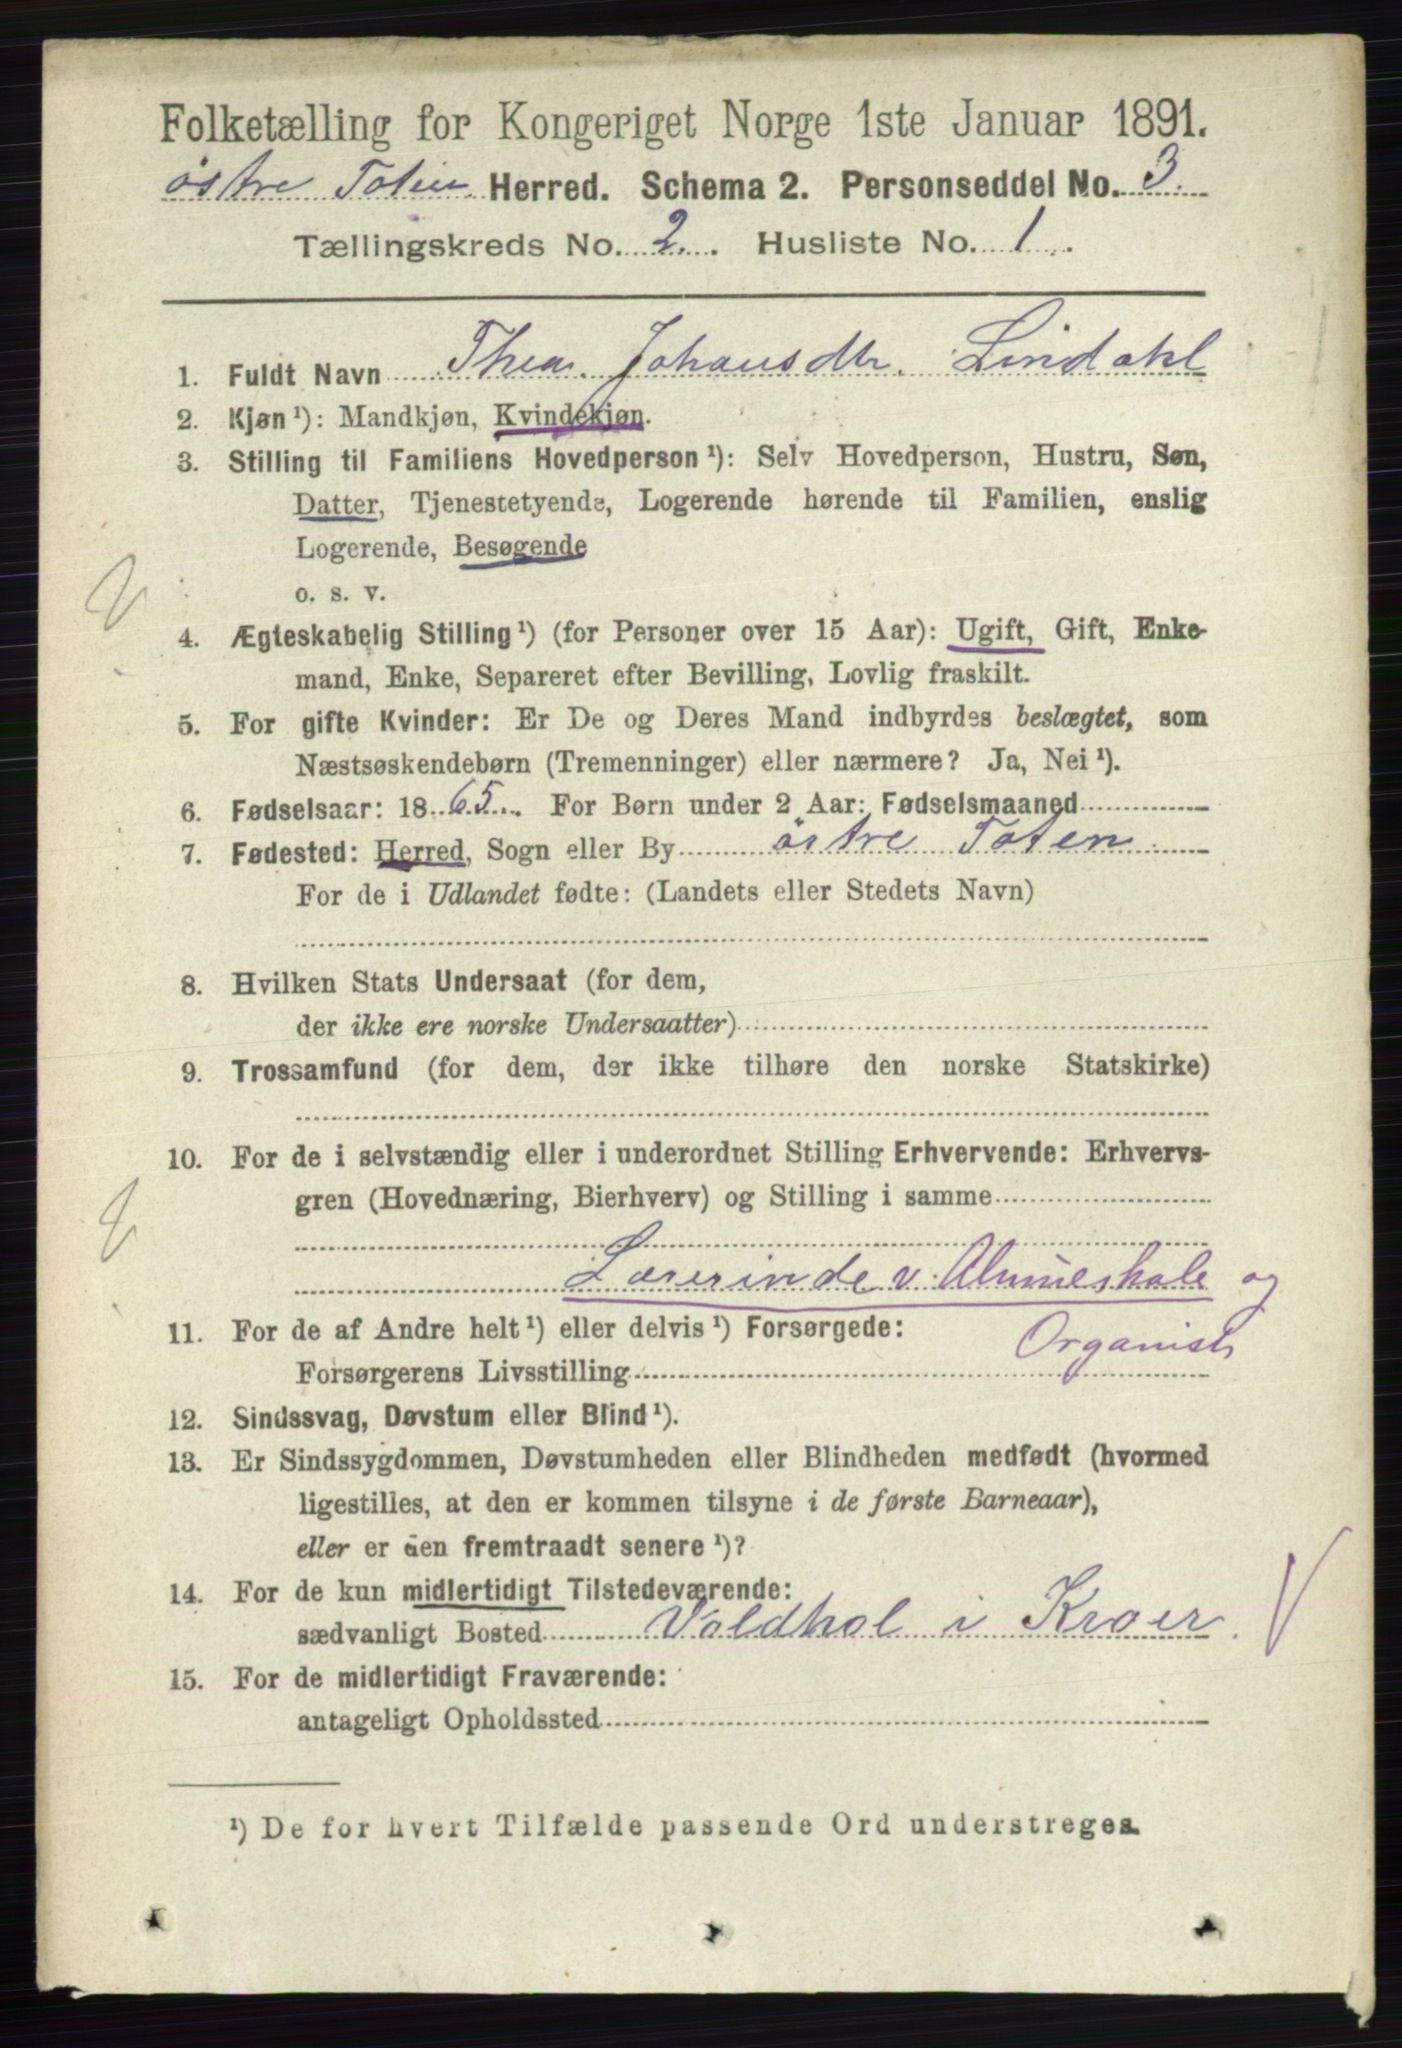 Folketælling for Kongeriget Norge 1ste Januar 1891.
østre Toten Herred. Schema 2. Personseddel No. 3.
Tællingskreds No. 2. Husliste No. 1.
1. Fuldt Navn Thea Johansdtr. Lindahl
2. Kjøn ¹): Mandkjøn, Kvindekjøn.
3. Stilling til Familiens Hovedperson ¹): Selv Hovedperson, Hustru, Søn,
Datter, Tjenestetyende, Logerende hørende til Familien, enslig
Logerende, Besøgende
o. s. v.
4. Ægteskabelig Stilling ¹) (for Personer over 15 Aar): Ugift, Gift, Enke-
mand, Enke, Separeret efter Bevilling, Lovlig fraskilt.
5. For gifte Kvinder: Er De og Deres Mand indbyrdes beslægtet, som
Næstsøskendebørn (Tremenninger) eller nærmere? Ja, Nei ¹).
6. Fødselsaar: 1865. For Børn under 2 Aar: Fødselsmaaned
7. Fødested: Herred, Sogn eller By østre Toten
For de i Udlandet fødte: (Landets eller Stedets Navn)
8. Hvilken Stats Undersaat (for dem,
der ikke ere norske Undersaatter)
9. Trossamfund (for dem, der ikke tilhøre den norske Statskirke)
10. For de i selvstændig eller i underordnet Stilling Erhvervende: Erhvervs-
gren (Hovednæring, Bierhverv) og Stilling i samme
Lærerinde v. Almueskole og
11. For de af Andre helt ¹) eller delvis ¹) Forsørgede: Organist
Forsørgerens Livsstilling
12. Sindssvag, Døvstum eller Blind ¹).
13. Er Sindssygdommen, Døvstumheden eller Blindheden medfødt (hvormed
ligestilles, at den er kommen tilsyne i de første Barneaar),
eller er den fremtraadt senere ¹)?
14. For de kun midlertidigt Tilstedeværende:
sædvanligt Bosted i Kroer.
15. For de midlertidigt Fraværende:
antageligt Opholdssted
¹) De for hvert Tilfælde passende Ord understreges.